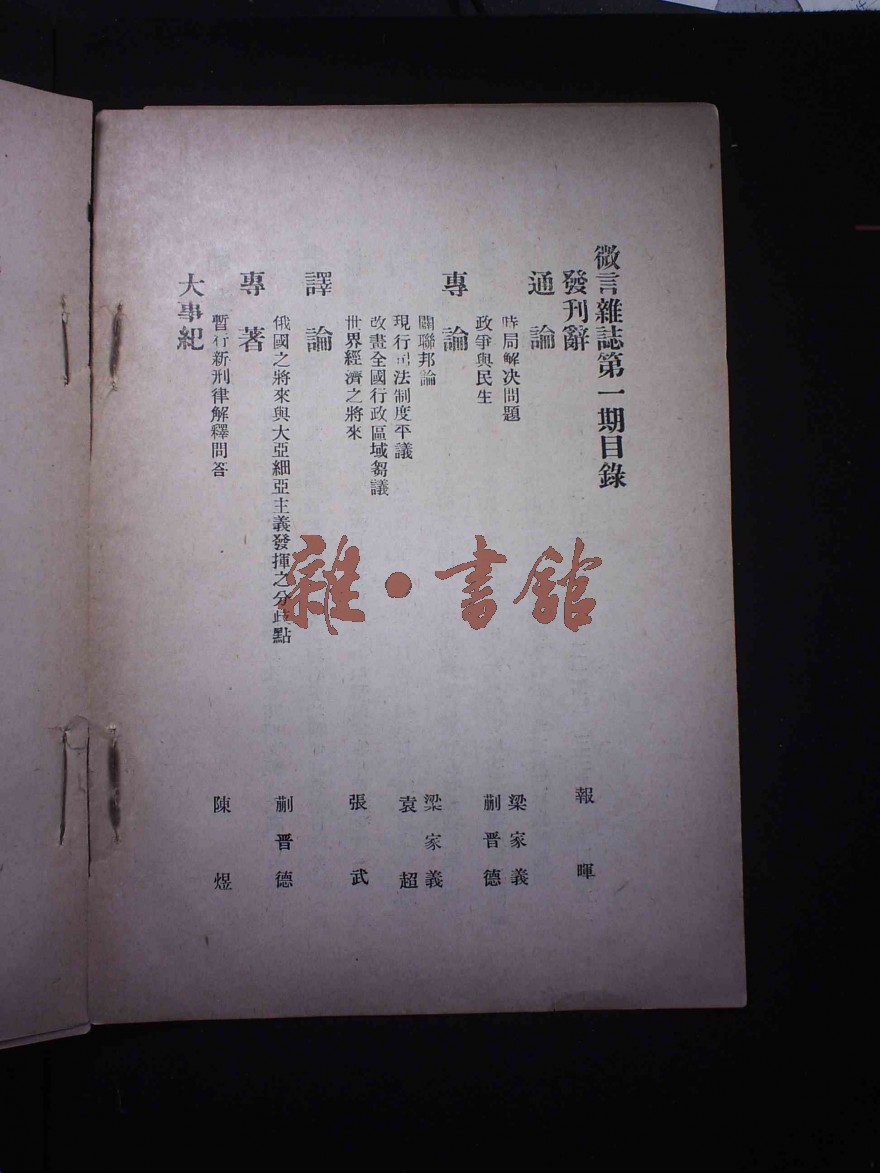 微言雜誌第一期目錄
發刊辭 報暉
通論
時局解決問題 梁家義
政爭與民生 蒯晋德
專論
闢聯邦論 梁家義
現行司法制度平議 袁超
改畫全國行政區域芻議
世界經濟之將來 張武
譯論
俄國之將來與大亞細亞主義發揮之分歧點 蒯晋德
專著
暫行新刑律解釋問答 陳煜
大事紀
雜·書館